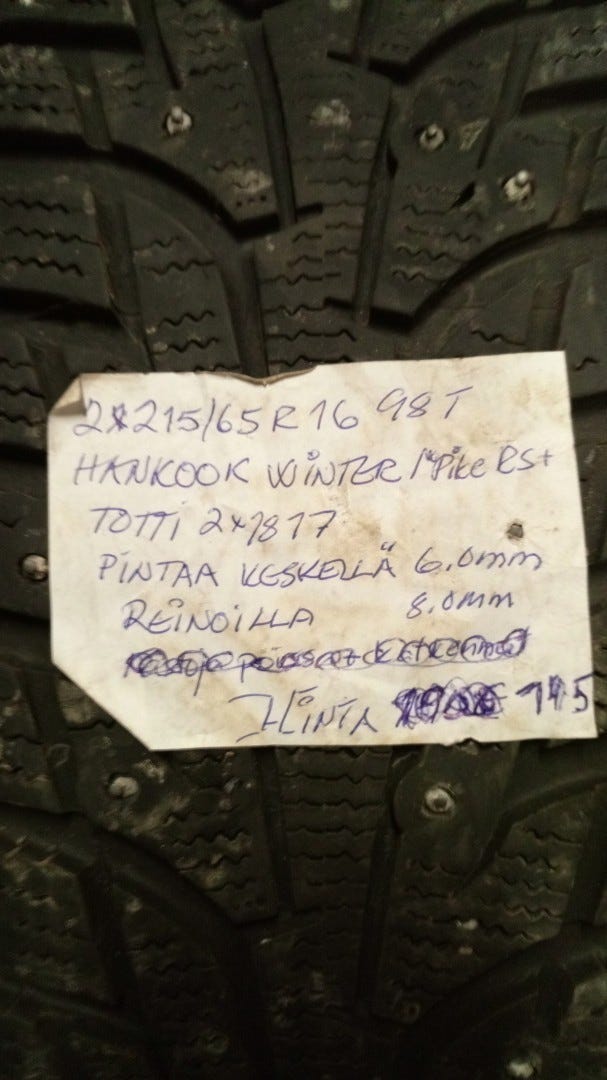 2x215/65 R 16 98T
HANKOOK WINTER I*Pike RS+
TOTTI 2x1817
PINTAA KESKELLÄ 6.0mm
REINOILLA 8.0mm
HINTA